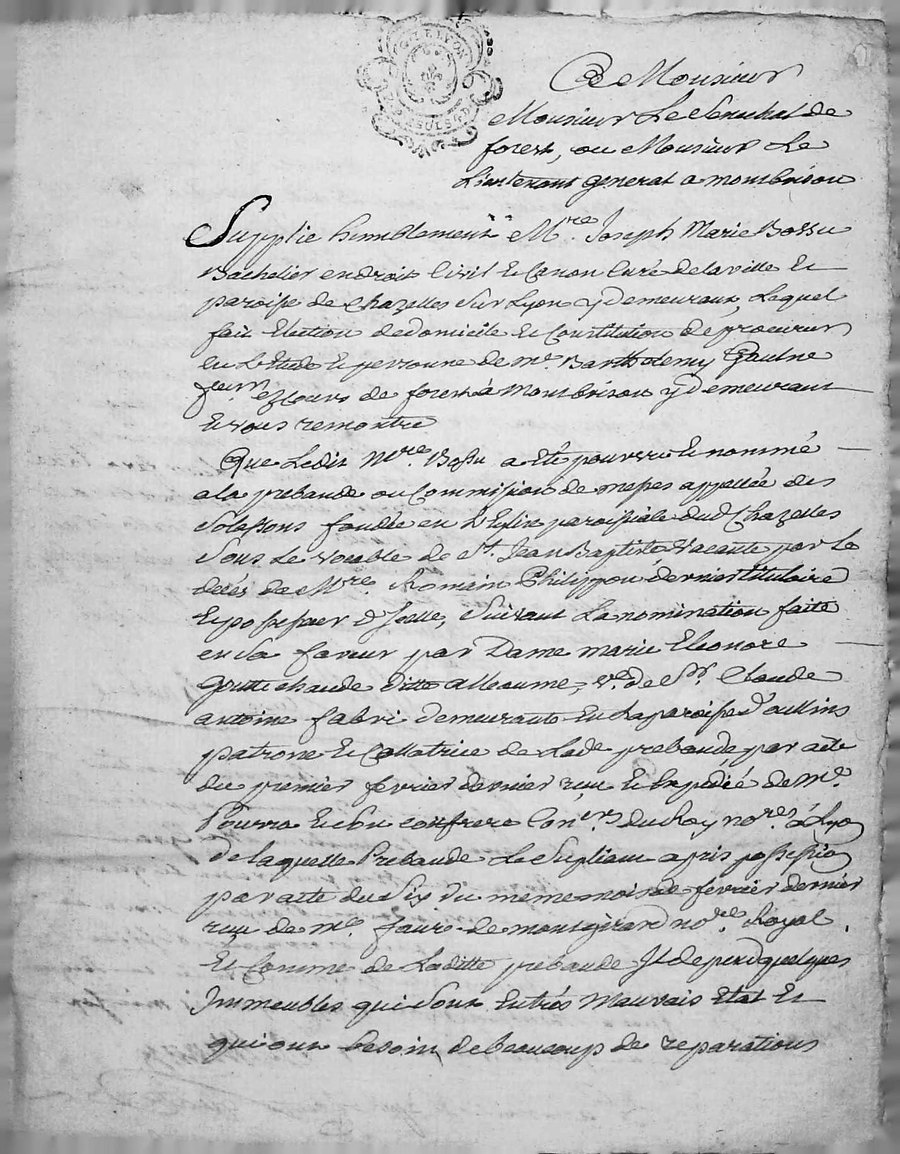 A Monsieur
Monsieur Le Senechal de
forest, ou Monsieur Le
Lieutenant general a montbrison
Supplie humblement Mre. Joseph Marie Bossu
Bachelier en droit Civil et Canon Curé de la ville et
paroisse de Chazelles Sur Lyon y demeurant, Lequel
fait Election de domicile et Constitution de procureur
en L'Etude et personne de me. Barthelemy Gaulne
es Cours de forest à Montbrison y demeurant
et vous remontre
Que Ledit Mre. Bossu a été pourvu et nommé
a la prebande ou Commission de messes appellée des
fondée en L'Eglise paroissiale dud Chazelles
Sous Le vocable de St. Jean Baptiste Vacante par le
décés de Mre. Romain Philippon dernier titulaire
et possesseur d'Icelle, Suivant La nomination faite
en Sa faveur par Dame marie Eleonore
Gouttechaude ditte alleaume, ve. de Sr. Claude
antoine fabri demeurante en La paroisse d'oullins
patrone et Collatrice de Lade prebande, par acte
du premier fevrier dernier reçu et Expedié de me.
Pourra et Son confrere Coners du Roy nores à Lyon
de laquelle Prebande Le Supliant a pris possession
par acte du Six du meme mois de février dernier
reçu de me. faure de montgirard nore. Royal.
Et Comme de Laditte prebande Il depend quelques
Immeubles qui Sont En trés Mauvais Etat Et
qui ont besoin de beaucoup de reparations